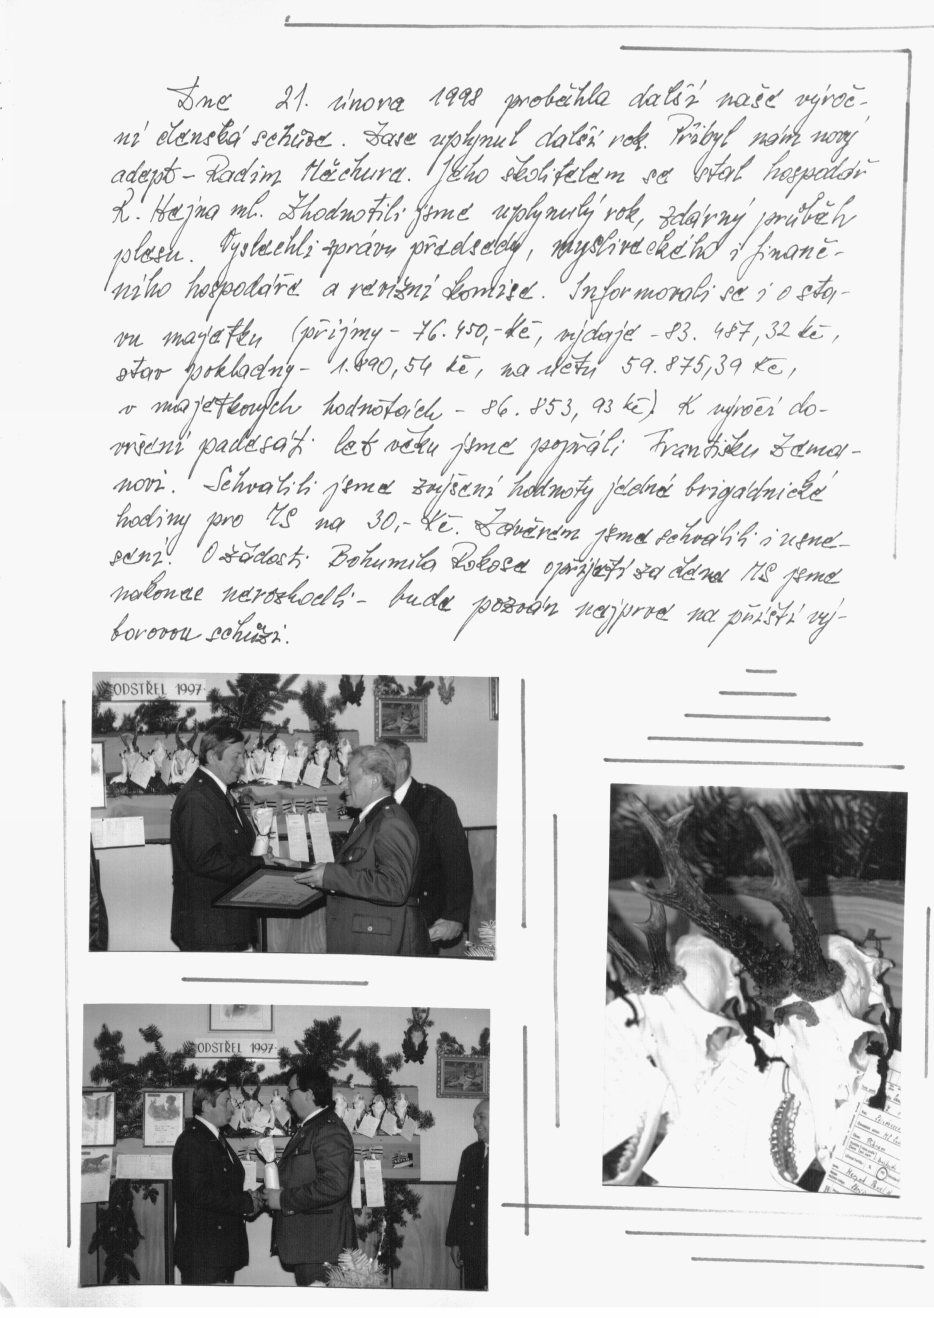 Dne 21. února 1998 proběhla další naše výroč-
ní členská schůze. Zase uplynul další rok. Přibyl nám nový
adept - Radim Měchura. Jeho školitelem se stal hospodář
K. Hejna ml. Zhodnotili jsme uplynulý rok, zdárný průběh
plesu. Vyslechli zprávu předsedy, mysliveckého i finanč-
ního hospodáře a revizní komise. Informovali se i o sta-
vu majetku (příjmy - 76.450,- Kč, výdaje - 83.487,32 Kč,
stav pokladny - 1.890,54 Kč, na účtu 59.875,39 Kč,
v majetkových hodnotách - 86.853,93 Kč). K výročí do-
vršení padesáti let věku jsme popřáli Františku Zema-
novi. Schválili jsme zvýšení hodnoty jedné brigádnické
hodiny pro MS na 30,- Kč. Závěrem jsme schválili i usne-
sení. O žádosti Bohumila Rokose o přijetí za člena MS jsme
nakonec nerozhodli - bude pozván nejprve na příští vý-
borovou schůzi.
ODSTŘEL 1997
ODSTŘEL 1997